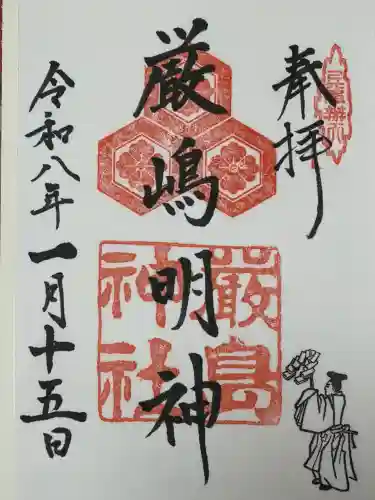 奉拝
厳嶋明神
厳島
神社
令和八年一月十五日